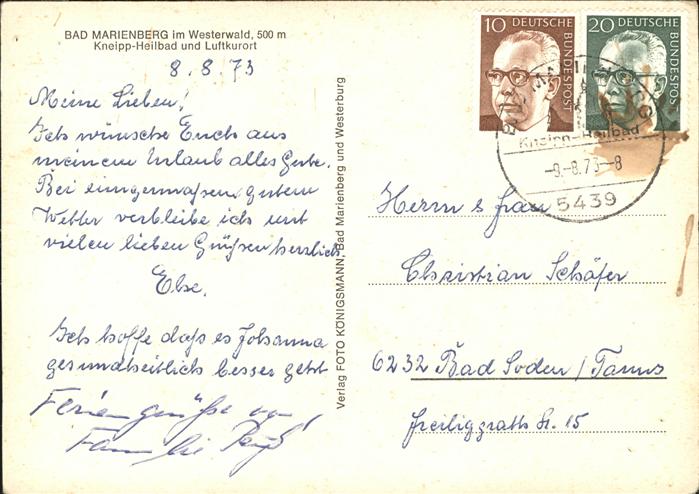 BAD MARIENBERG im Westerwald, 500 m
Kneipp-Heilbad und Luftkurort
8.8.73
Meine Lieben!
Ich wünsche Euch aus
meinem Urlaub alles Gute.
Bei einigermaßen gutem
Wetter verbleibe ich mit
vielen lieben Grüßen herzlich
Else.
Ich hoffe daß es Johanna
gesundheitlich besser geht
Feriengrüße von
Familie
Verlag FOTO KÖNIGSMANN, Bad Marienberg und Westerburg
10 DEUTSCHE BUNDESPOST
20 DEUTSCHE BUNDESPOST
Kneipp-Heilbad
-9.-8.73-8
5439
Herrn & Frau
Christian Schäfer
6232 Bad Soden / Taunus
Freiligrath Str. 15